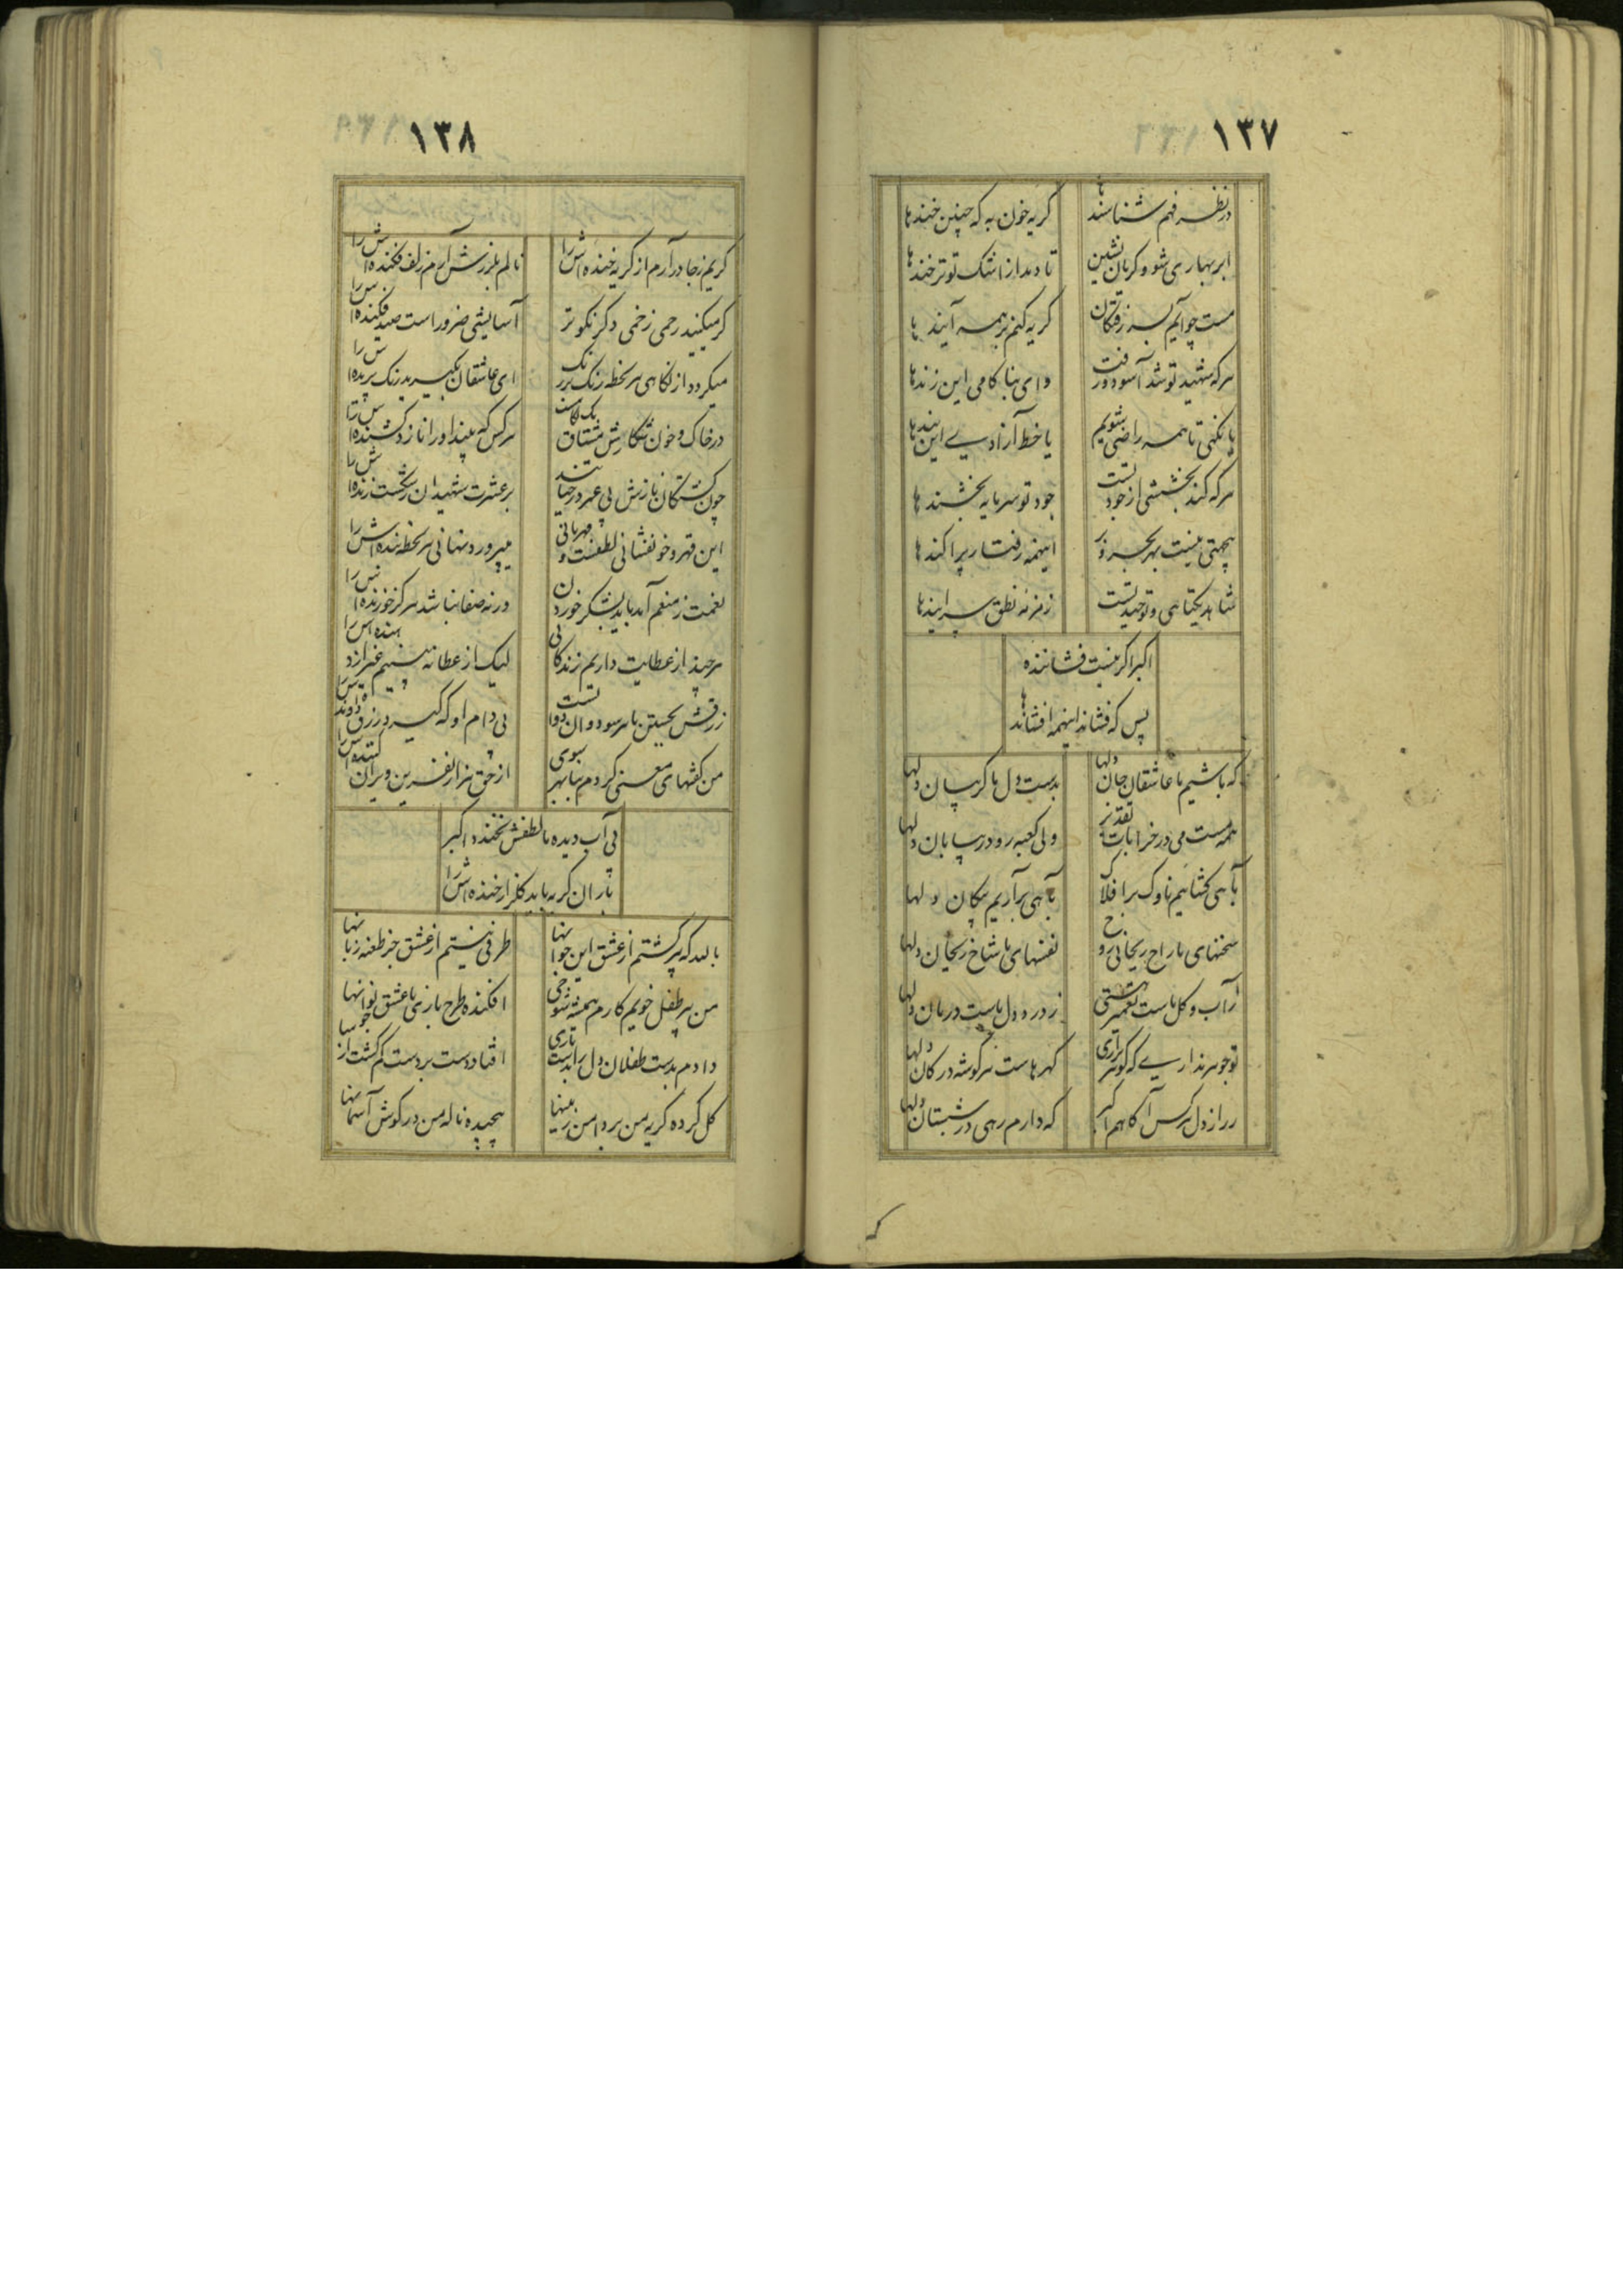 ۱۳۷
در نظر فهم شناسندها گریه خون به که چنین خندها
ابر بهاری شو و گریان نشین تا دمد از اشک تو تر خندها
مست چو آیم بسر رفتگان گریه کنم بر همه آیندها
هر که شهید تو شد آسوده رفت وای بناکامی این زندها
یا نگهی تا همه راضی شویم یا خط آزادی این بندها
هر که کند بخششی از جود تست جود تو سرمایه بخشندها
بیجهتی نیست بهر بحر و بر اینهمه رفتار پراکندها
شاهد یکتاهی و توحید تست زمزمه نطق سرایندها
اکبر اگر نیست فشاننده
پس که فشاند اینهمه افشاندها
که باشیم ما عاشقان جان دلها بدست دل ما گریبان دلها
همه مست می در خرابات ولی کعبه رو در بیابان دلها
بآهی گشائیم ناوک بر افلاک بآهی برآریم پیکان دلها
سخنهای ما راح ریحانی روح نفسهای ما شاخ ریحان دلها
ز آب و گل ماست تعمیر هستی ز درد دل ماست درمان دلها
تو جوهر نداری که گوهر برآری گهرهاست هر گوشه در کان دلها
ز راز دل هر کس آگاهم اکبر که دارم رهی در شبستان دلها
۱۳۸
گریم ز جا درآرم از گریه خنده‌اش را نالم بلرزش آرم زلف فکنده‌اش را
گر میکنید رحمی زخمی دگر نکوتر آسایشی ضرور است صید فکنده‌اش را
میگردد از نگاهی هر لحظه رنگ بر رنگ ای عاشقان بگیرید رنگ پریده‌اش را
در خاک و خون شکارش مشتاق یک نگاهست هر کس که بیند او را نازد کشنده‌اش را
چون کشتگان نازش بی عمر در حیاتند بر عشرت شهیدان رشکست زنده‌اش را
این قهر و خونفشانی لطفست و مهربانی میپرورد نهانی هر لحظه بنده‌اش را
نعمت ز منعم آمد باید بشکر خوردن ورنه صفا نباشد هرگز خورنده‌اش را
هر چند از عطایت داریم زندگانی لیک از عطا نه بینیم غیر از دهنده‌اش را
من کفشهای معنی کردم بپا بهر سوی از حق هزار نفرین ویران کننده‌اش را
بی آب دیده ما لطفش نخندد اکبر
باران گریه باید گلزار خنده‌اش را
بالله که پیر گشتم از عشق این جوانها طرفی نبستم از عشق جز طعنه زبانها
من پیر طفل خویم کارم همیشه شوخی افکنده طرح بازی با عشق نوجوانها
دادم بدست طفلان دل را بدست بازی افتاد دست بر دست گم گشت از میانها
گل کرده گریه من بر دامن زمینها پیچیده ناله من در گوش آسمانها